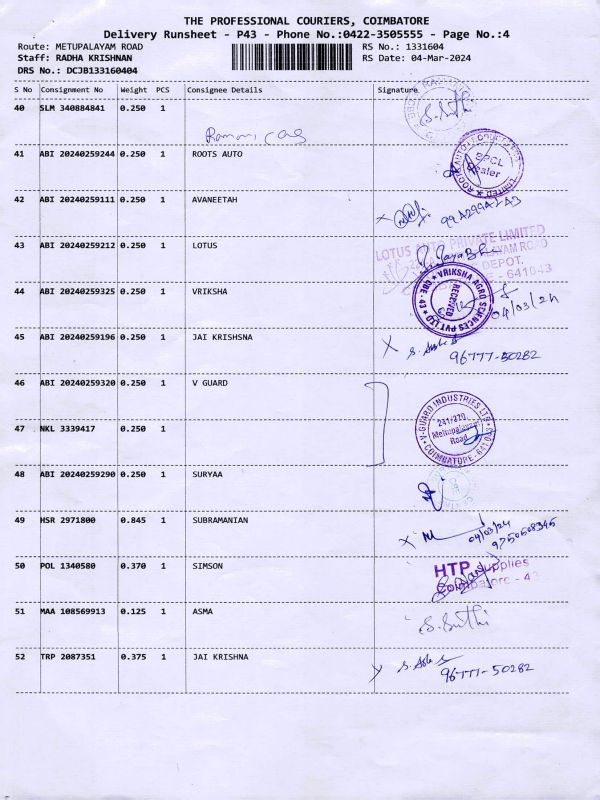 THE PROFESSIONAL COURIERS, COIMBATORE
Delivery Runsheet - P43 - Phone No.:0422-3505555 - Page No.:4
Route: METUPALAYAM ROAD RS No.: 1331604
Staff: RADHA KRISHNAN RS Date: 04-Mar-2024
DRS No.: DCJB133160404
S No Consignment No Weight PCS Consignee Details Signature
40 SLM 340884841 0.250 1
S. Suthi
41 ABI 20240259244 0.250 1 ROOTS AUTO
BPCL
Dealer
42 ABI 20240259111 0.250 1 AVANEETAH
43 ABI 20240259212 0.250 1 LOTUS
LOTUS AUTO PRIVATE LIMITED
DEPOT.
641043
44 ABI 20240259325 0.250 1 VRIKSHA
VRIKSHA AGRO SCIENCES PVT LTD
CBE-43
RECEIVED
04/03/24
45 ABI 20240259196 0.250 1 JAI KRISHSNA
96777-50282
46 ABI 20240259320 0.250 1 V GUARD
V-GUARD INDUSTRIES LTD
241/270,
Mettupalayam
Road
COIMBATORE - 641043
47 NKL 3339417 0.250 1
48 ABI 20240259290 0.250 1 SURYAA
49 HSR 2971800 0.845 1 SUBRAMANIAN
04/03/24
9750508345
50 POL 1340580 0.370 1 SIMSON
HTP Supplies
Coimbatore - 43
51 MAA 108569913 0.125 1 ASMA
S. Suthi
52 TRP 2087351 0.375 1 JAI KRISHNA
96777-50282